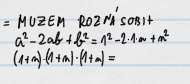 = MUZEM ROZNÁSOBIT
a²-2ab+b² = 1²-2·1·m+m²
(1+m)·(1+m)·(1+m) =